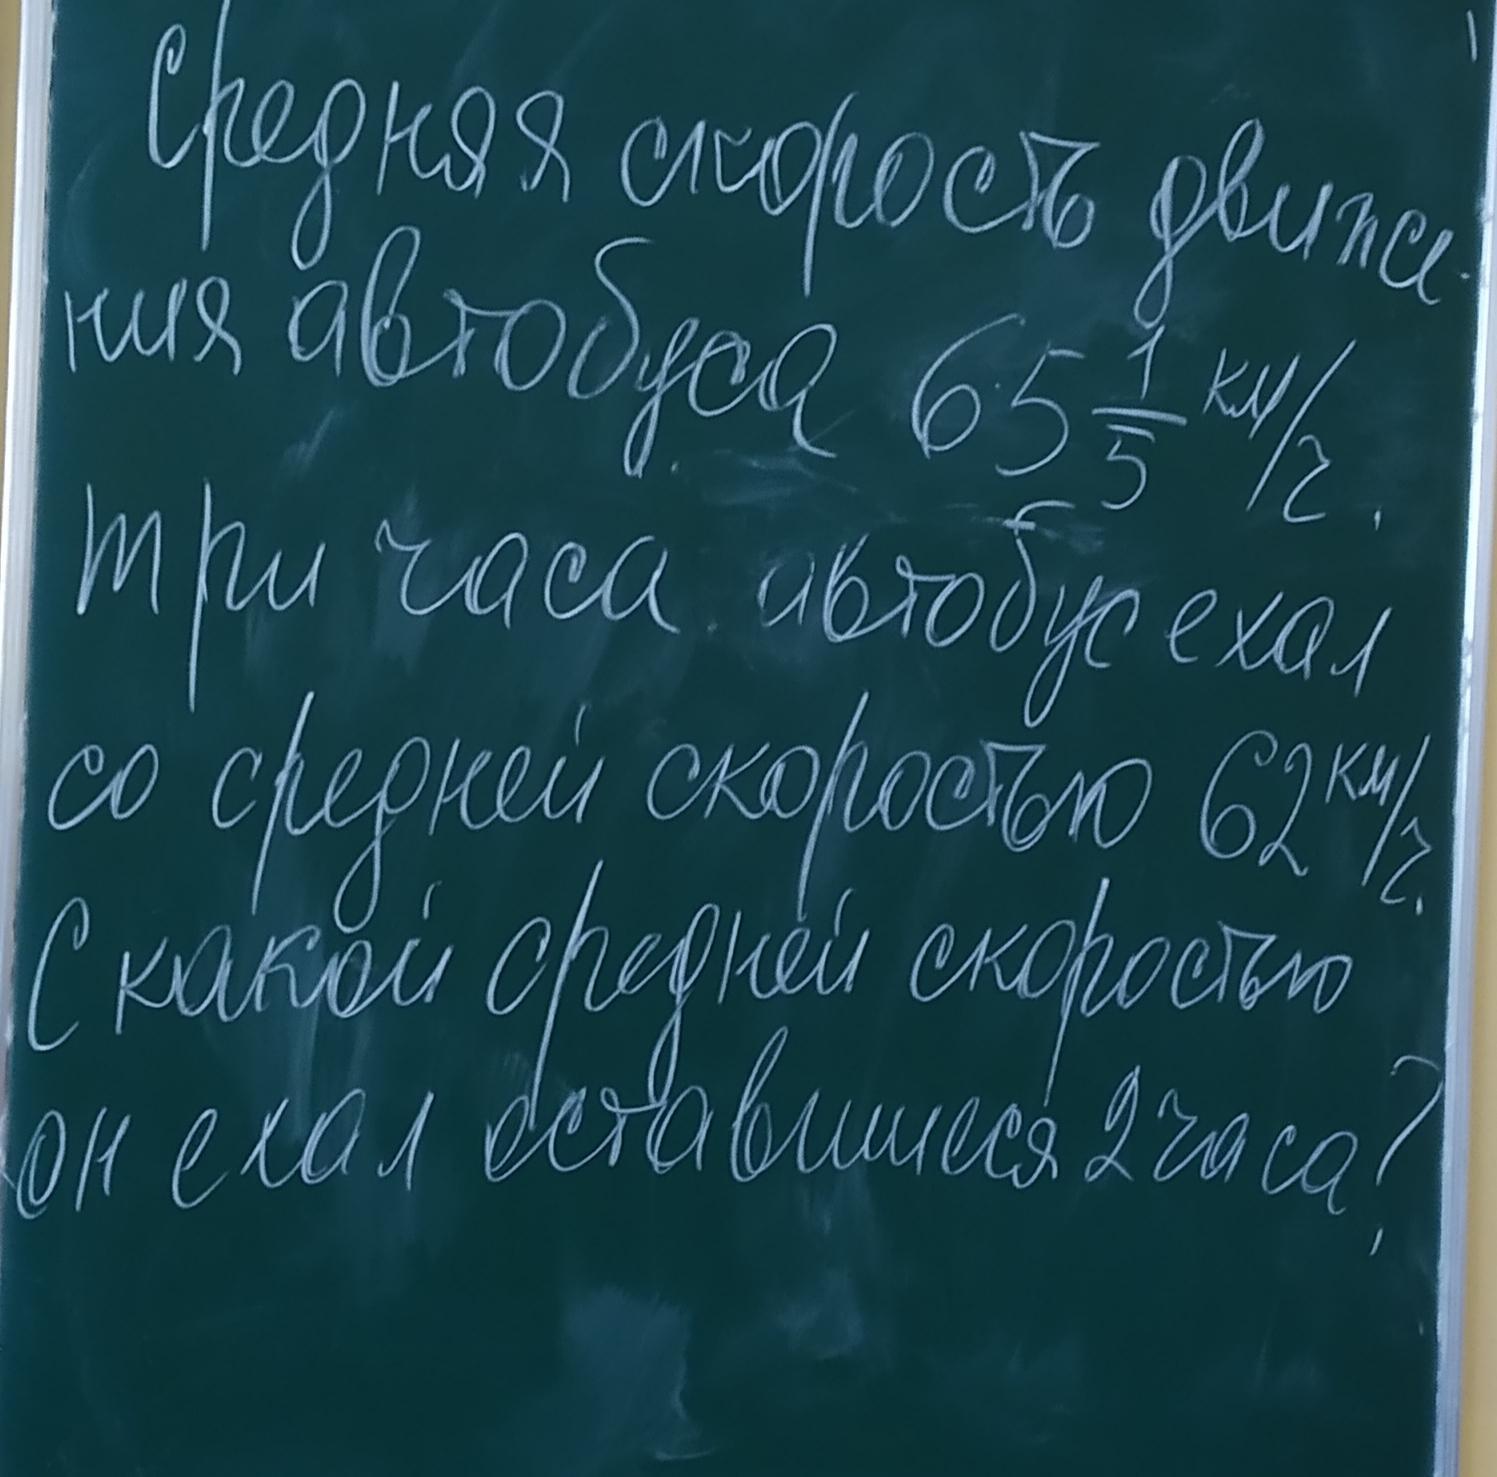 Средняя скорость движе-
ния автобуса 65 1/5 км/ч.
Три часа автобус ехал
со средней скоростью 62 км/ч.
С какой средней скоростью
он ехал оставшиеся 2 часа?